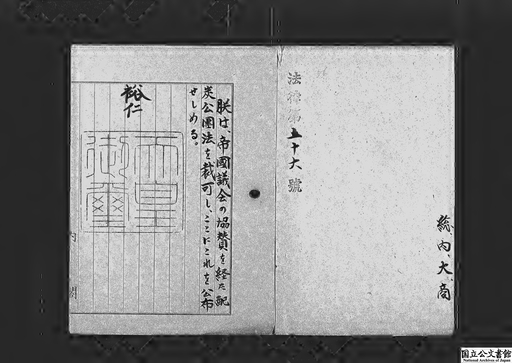 総、内、大、商
法律第五十六號
朕は、帝國議会の協賛を経た配
炭公團法を裁可し、ここにこれを公布
せしめる。
裕仁
天皇
御璽
内閣
国立公文書館
National Archives of Japan